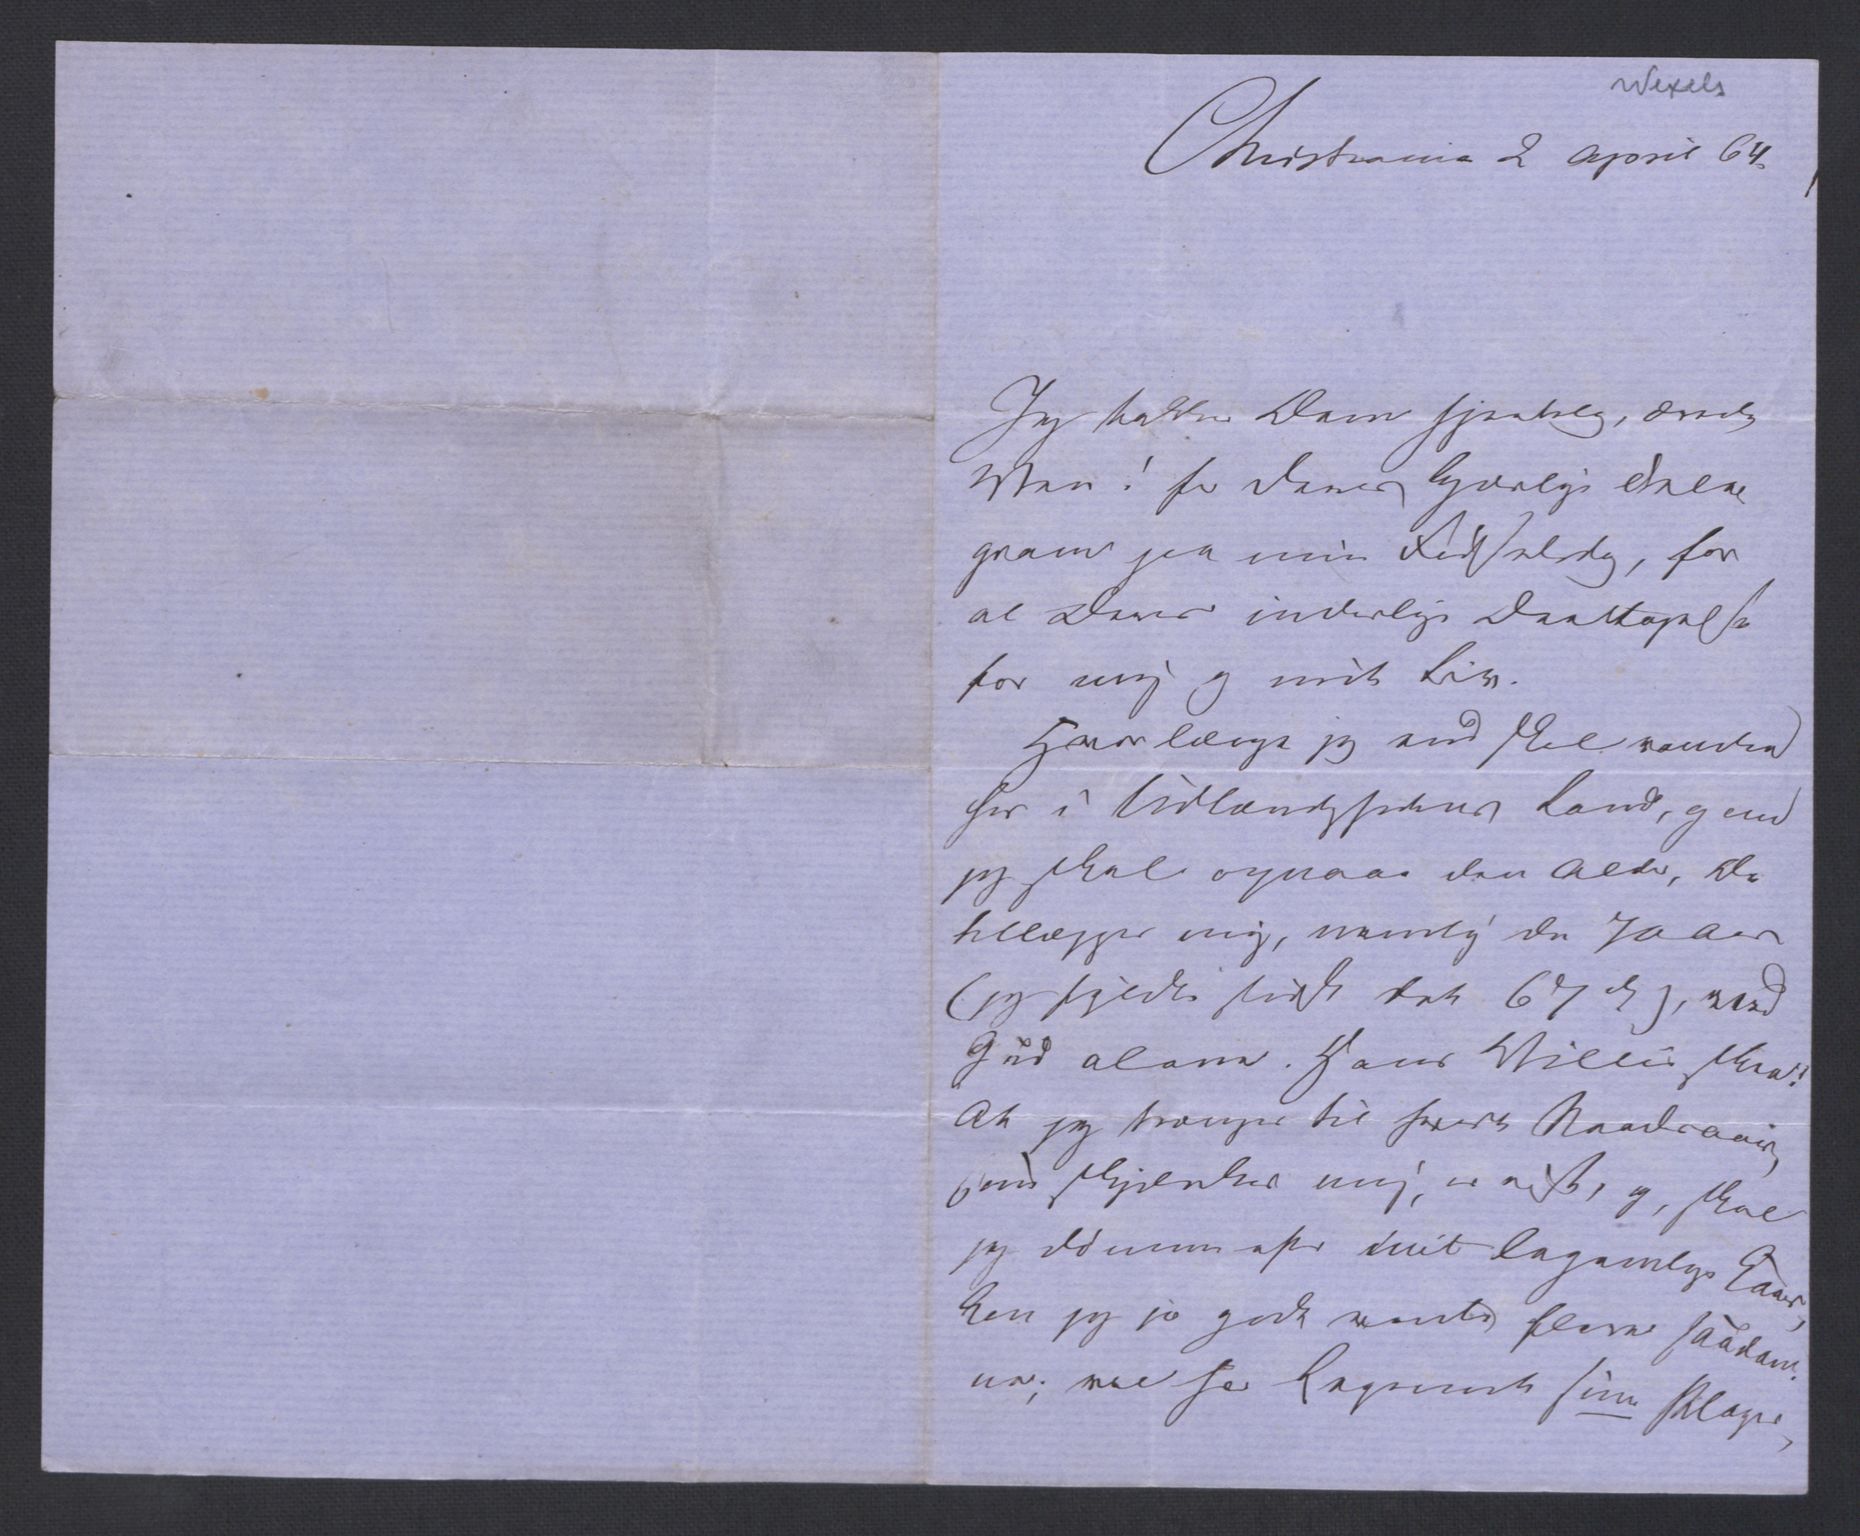 Wexels
Christiania 2 April 64.
Jeg takker Dem hjertelig, ærede
Ven! for Deres kjærlige Tele
gram paa min Fødselsdag, for
al Deres inderlige Deeltagelse
for mig og mit Liv.
Hvorlænge jeg end skal vandre
her i Udlændighedens Land, og om
jeg skal opnaae den Alder, De
tillægger mig, nemlig de 70 Aar
(jeg fyldte sidst det 67de), veed
Gud alene. Hans Villie skee!
At jeg trænger til hvert Naadeaar,
han skjenker mig, er vist, og, skal
jeg dømme efter mit legemlige Kaar,
kan jeg jo godt vente flere saadan
ne; vel har Legemet sine Plager,